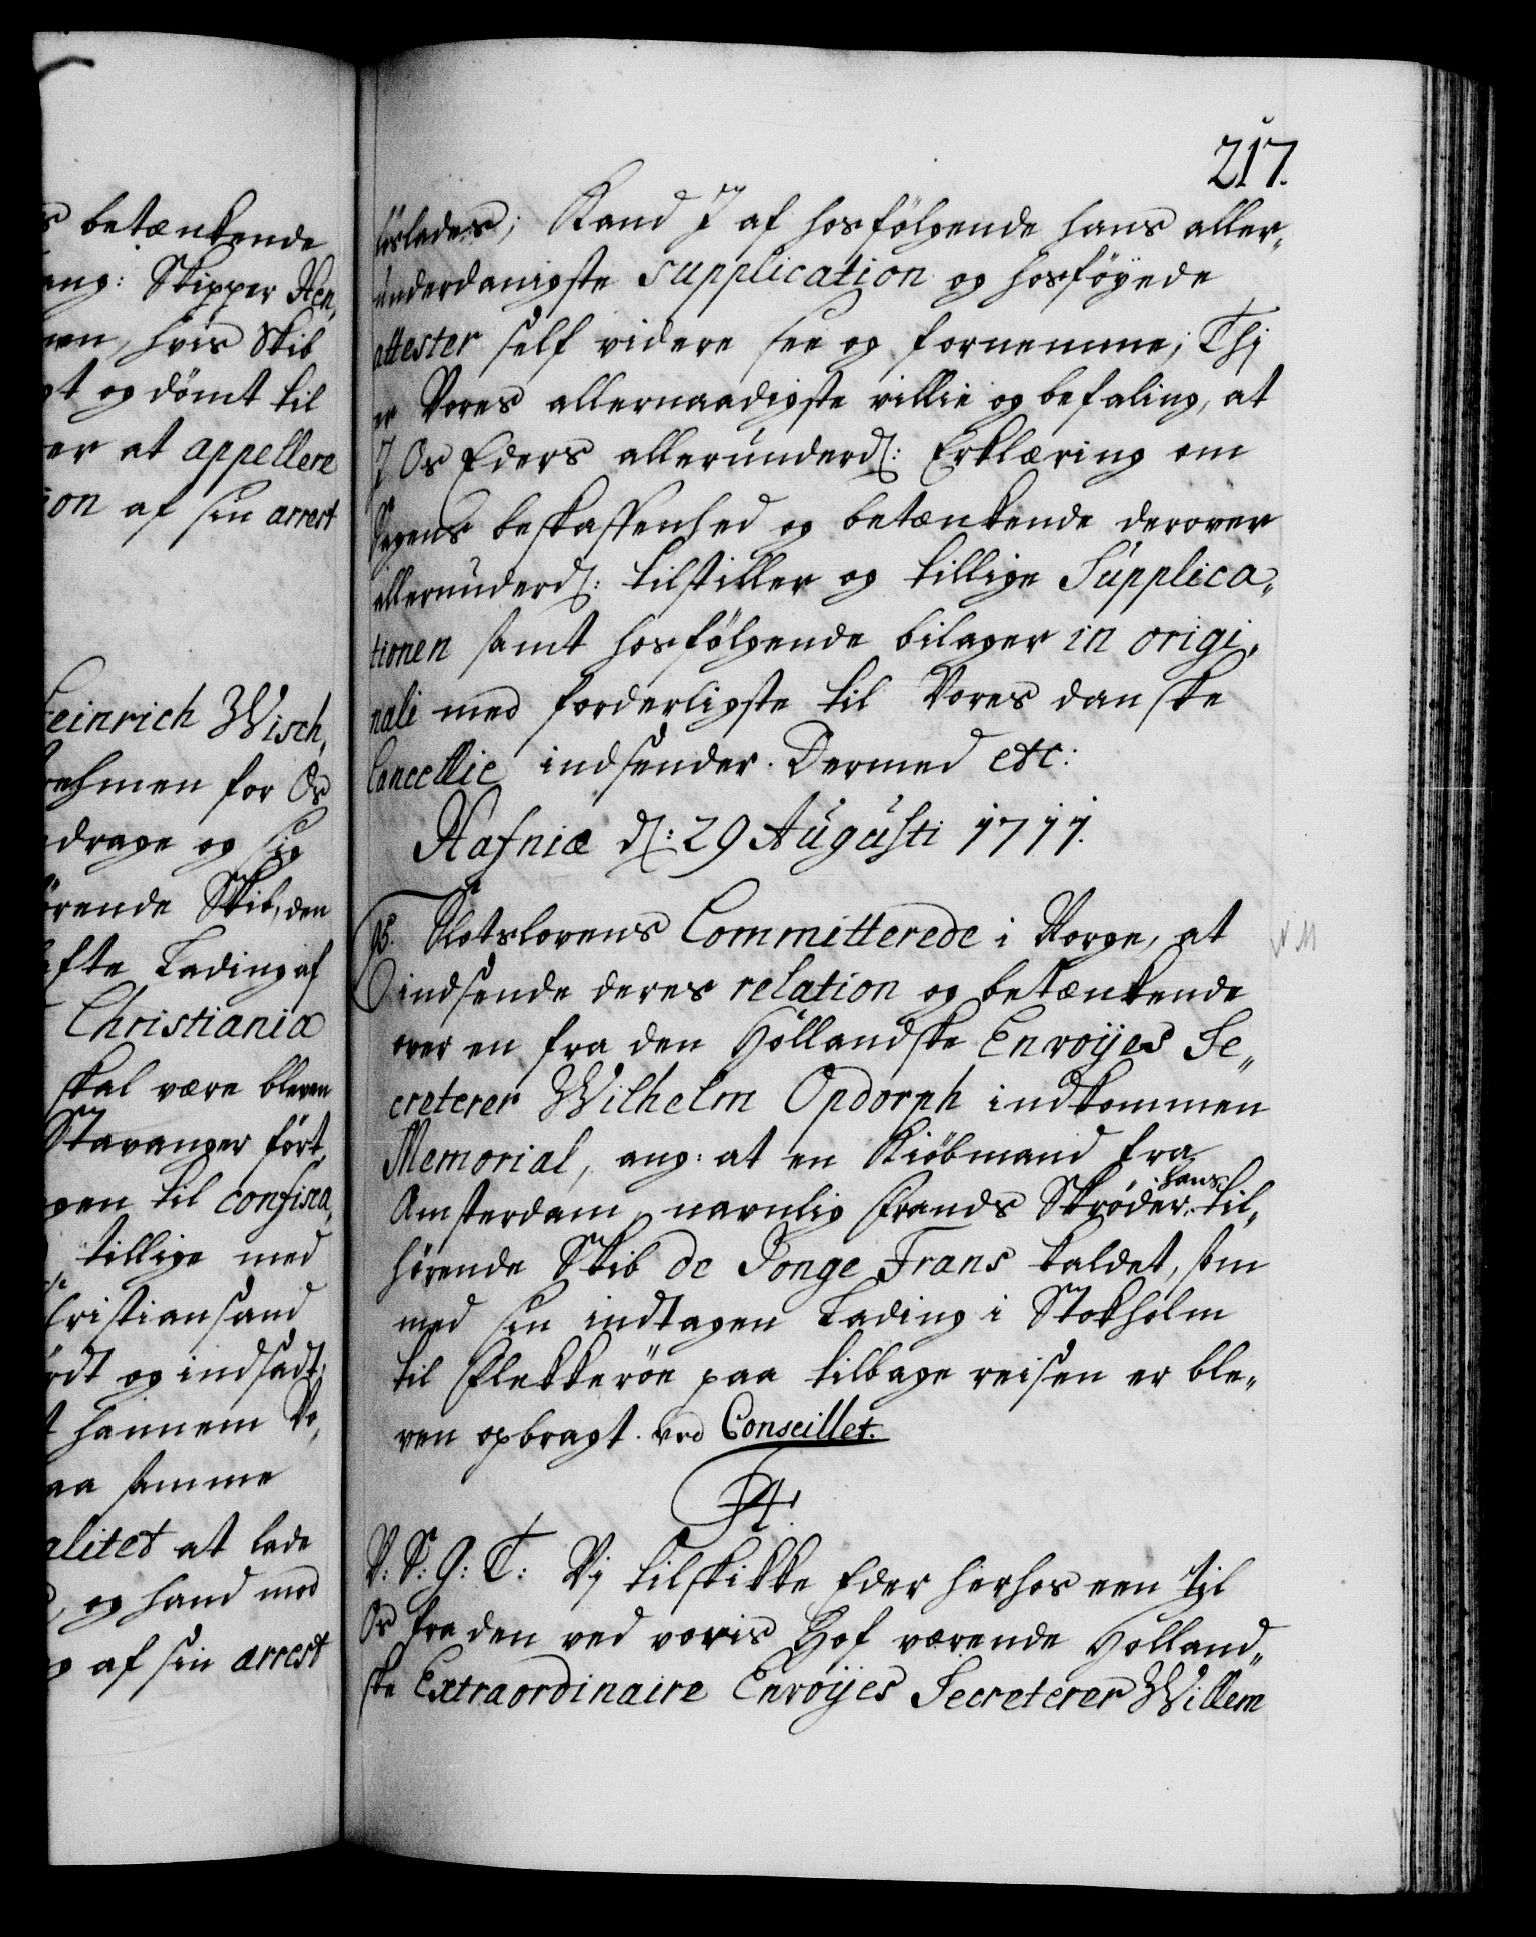 217.
s betænkende
ang: Skipper Hen,
men, hvis Skib
gt og dömt til
er at appellere
ion af sin arrest
Heinrich Wisch,
ehmen for Os
drage og sig
örende Skib, den
fte Lading af
Christiania
skal være bleven
Stavanger fört,
gen til confisca,
tillige med
Christiansand
rdt og indsadt,
t hannem Vo,
aa samme
alitet at lade
og hand mod
g af sin arrest
löslades; Kand J af hosfölgende hans aller,,
underdanigste supplication og hosföyede
attester self videre see og fornemme; Thj
er Vores allernaadigste villie og befaling, at
J Os Eders allerunderd: Erklæring om
Sagens beskaffenhed og betænkende derover
allerunderd: tilstiller og tillige Supplica,,
tionen samt hosfölgende bilager in origi,
nali med forderligste til Vores danske
Cancellie indsender. Dermed etc:
Hafniæ d: 29 Augusti 1711.
95. Slotslovens Committerede i Norge, at
indsende deres relation og betænkende
over en fra den Hollandske Envoyes Se,,
creterer Wilhelm Opdorph indkommen
Memorial, ang: at en Kiöbmand fra
Amsterdam, navnlig Frands Skröder, hans til,,
hörende Skib de Jonge Frans kaldet, som
med sin indtagen Lading i Stokholm
til Flekkeröe paa tilbage reisen er ble,,
ven opbragt. ved Conseillet.
F 4.
V: S: G: T: Vj tilskikke Eder herhos een til
Os fra den ved voris Hof værende Holland,,
ske Extraordinaire Envoyes Secreterer Willem